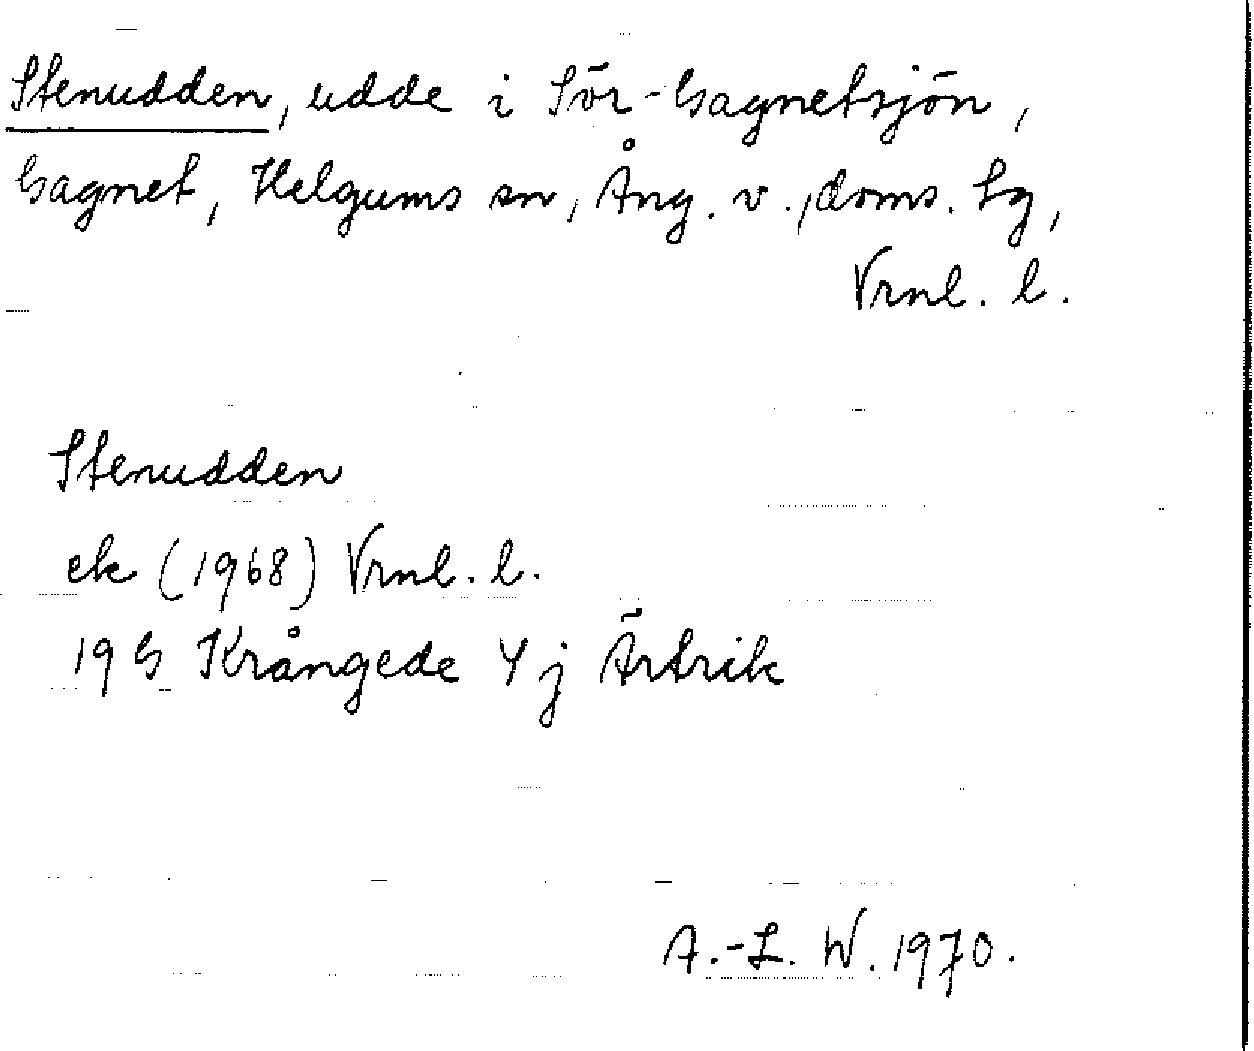 Stenudden, udde i Sör-Gagnetsjön,
Gagnet, Helgums sn, Ång. v., doms. tg,
Vrnl. l.
Stenudden
ek (1968) Vrnl. l.
19 G Krångede 4 j Ärtrik
A.-L. W. 1970.